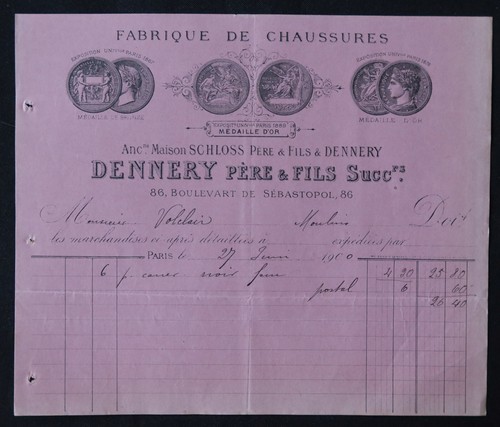 FABRIQUE DE CHAUSSURES
EXPOSITION UNIVlle PARIS 1867
EXPOSITION UNIVlle PARIS 1878
MÉDAILLE DE BRONZE
MÉDAILLE D'OR
EXPOSITION UNIVlle PARIS 1889
MÉDAILLE D'OR
Ancne MAISON SCHLOSS PÈRE & FILS & DENNERY
DENNERY PÈRE & FILS Succrs.
86, BOULEVART DE SÉBASTOPOL, 86
Monsieur Volclair Moulins Doit
les marchandises ci après détaillées à expédiées par
PARIS le 27 1900
6 p. noir 4 20 25 80
postal 6 60
26 40